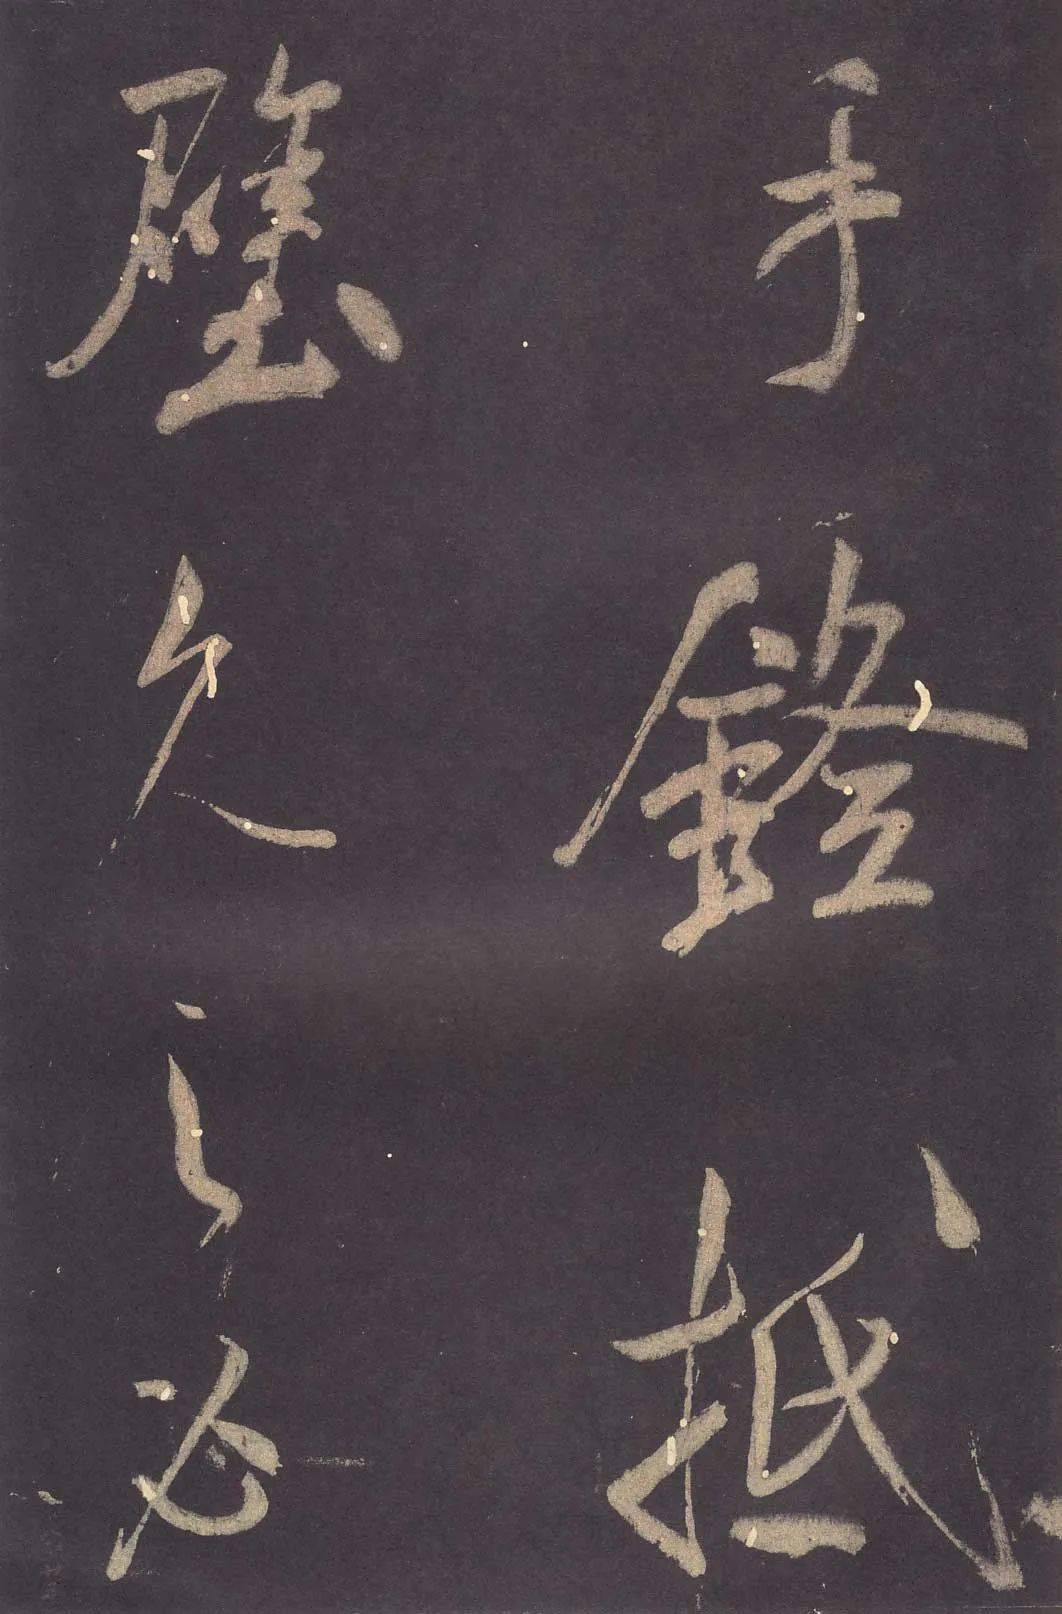 手鐙抵
壁久之必